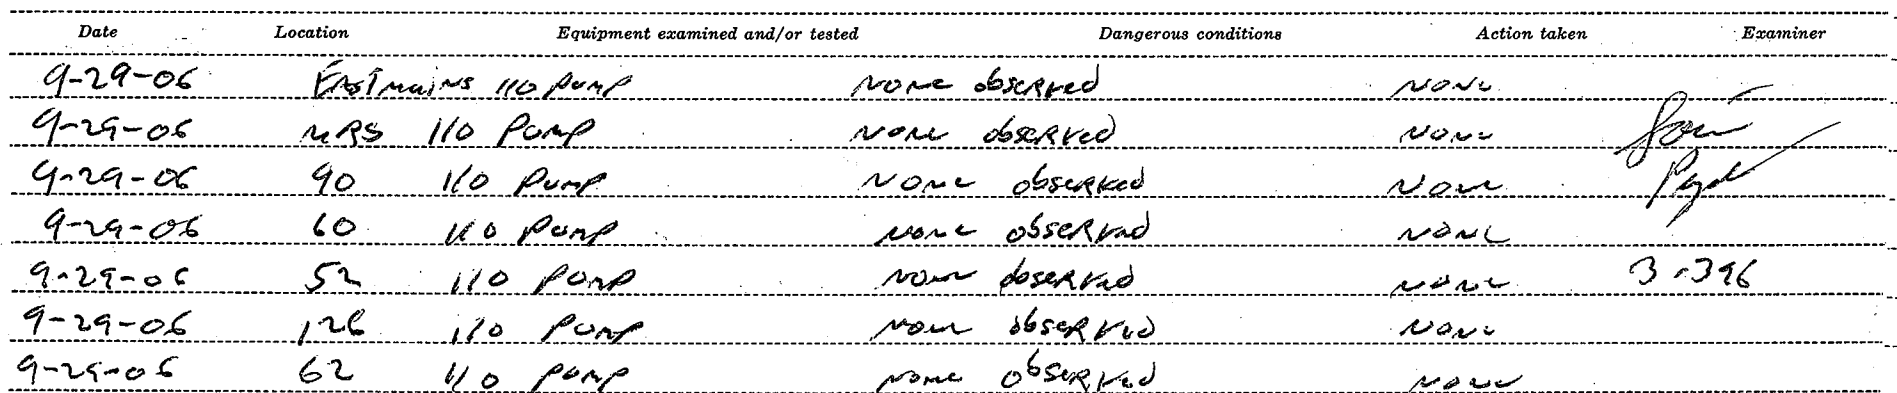 Date Location Equipment examined and/or tested Dangerous conditions Action taken Examiner
9-29-06 Eastmains 110 pump None observed None
9-29-06 MRS 110 Pump None observed None
9-29-06 90 110 Pump None observed None
9-29-06 60 110 Pump None observed None
9-29-06 52 110 Pump None observed None 3-396
9-29-06 126 110 Pump None observed None
9-29-06 62 110 Pump None observed None